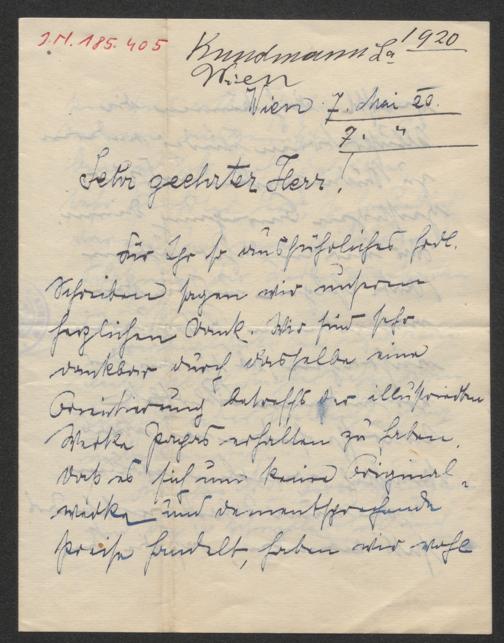 J.N. 185.405
Kundmann La 1920
Wien
Wien 7. Mai 20.
7. "
Sehr geehrter Herr!
Für Ihr so ausführliches frdl.
Schreiben sagen wir unseren
herzlichen Dank. Wir sind sehr
dankbar durch dasselbe eine
Orientierung betreffs der illustrierten
Werke Papas erhalten zu haben.
Daß es sich um keine Original-
werke und dementsprechende
Preise handelt, haben wir wohl